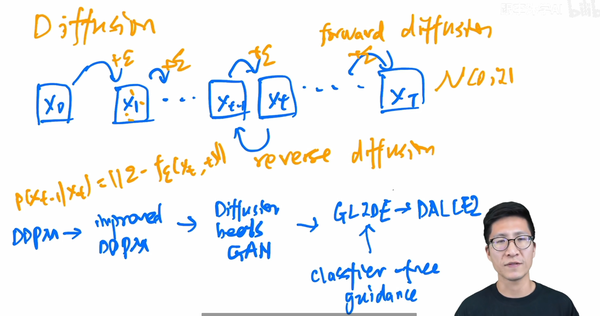 Diffusion
forward diffusion
+ε +ε +ε +ε
X0 X1 ... Xt-1 Xt .... XT N(0,I)
reverse diffusion
p(xt-1|xt) = ||ε - fε(xt, t)||
DDPM → improved DDPM → Diffusion beats GAN → GLIDE → DALLE2
classifier-free
guidance
bilibili